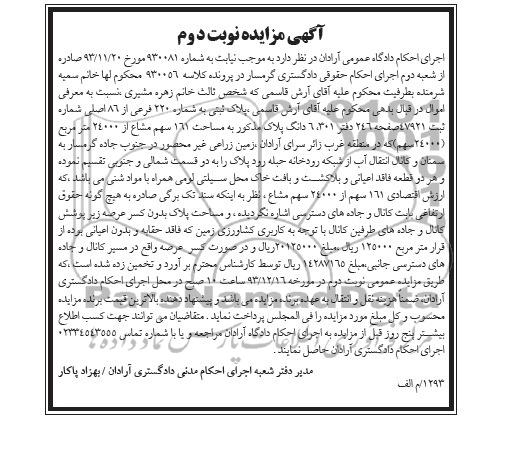 آگهی مزایده نوبت دوم
اجرای احکام دادگاه عمومی آرادان در نظر دارد به موجب نیابت به شماره ۹۳۰۰۸۱ مورخ ۹۳/۱۱/۲۰ صادره
از شعبه دوم اجرای احکام حقوقی دادگستری گرمسار در پرونده کلاسه ۹۳۰۰۵۶ محکوم لها خانم سمیه
شرمنده بطرفیت محکوم علیه آقای آرش قاسمی که شخص ثالث خانم زهره مشیری ،نسبت به معرفی
اموال در قبال بدهی محکوم علیه آقای آرش قاسمی ،پلاک ثبتی به شماره ۲۲۰ فرعی از ۸۶ اصلی شماره
ثبت ۴۷۹۲۱صفحه ۲۴۶ دفتر ۶،۳۰۱ دانگ پلاک مذکور به مساحت ۱۶۱ سهم مشاع از ۲۴۰۰۰ متر مربع
(۲۴۰۰۰سهم)که در منطقه غرب زائر سرای آرادان ،زمین زراعی غیر محصور در جنوب جاده گرمسار به
سمنان و کانال انتقال آب از شبکه رودخانه حبله رود پلاک را به دو قسمت شمالی و جنوبی تقسیم نموده
و هر دو قطعه فاقد اعیانی و بلاکشت و بافت خاک محل سیلتی لومی همراه با مواد شنی می باشد ،که
ارزش اقتصادی ۱۶۱ سهم از ۲۴۰۰۰ سهم مشاع ، نظر به اینکه سند تک برگی صادره به هیچ گونه حقوق
ارتفاعی بابت کانال و جاده های دسترسی اشاره نگردیده ، و مساحت پلاک بدون کسر عرصه زیر پوشش
کانال و جاده های طرفین کانال با توجه به کاربری کشاورزی زمین که فاقد حقابه و بدون اعیانی بوده از
قرار متر مربع ۱۲۵۰۰۰ ریال ،مبلغ ۲۰۱۲۵۰۰۰ریال و در صورت کسر عرصه واقع در مسیر کانال و جاده
های دسترسی جانبی،مبلغ ۱۴۲۸۷۱۶۵ ریال توسط کارشناس محترم بر آورد و تخمین زده شده است ،که
طریق مزایده عمومی نوبت دوم در مورخه ۹۳/۱۲/۱۶ ساعت ۱۰ صبح در محل اجرای احکام دادگستری
آرادان، ضمناً هزینه نقل و انتقال به عهده برنده مزایده می باشد و پیشنهاد دهنده بالاترین قیمت برنده مزایده
محسوب و کل مبلغ مورد مزایده را فی المجلس پرداخت نماید . متقاضیان می توانند جهت کسب اطلاع
بیشتر پنج روز قبل از مزایده به اجرای احکام دادگاه آرادان مراجعه و یا با شماره تماس ۰۲۳۳۴۵۴۳۵۵۵
اجرای احکام دادگستری آرادان حاصل نمایند .
مدیر دفتر شعبه اجرای احکام مدنی دادگستری آرادان / بهزاد پاکار
۱۲۹۳/م الف